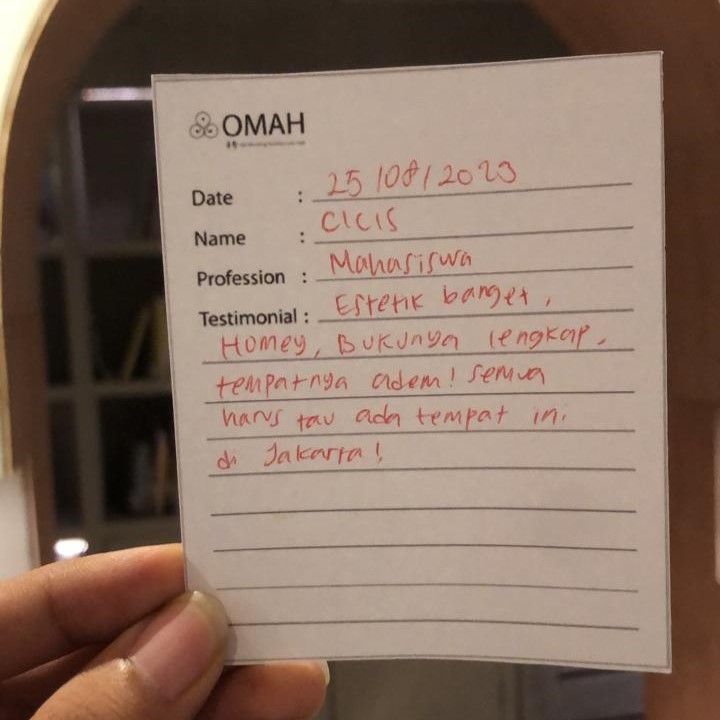 OMAH
Date : 25/08/2023
Name : CICIS
Profession : Mahasiswa
Testimonial : Estetik banget,
Homey, Bukunya lengkap,
tempatnya adem! semua
harus tau ada tempat ini
di Jakarta!